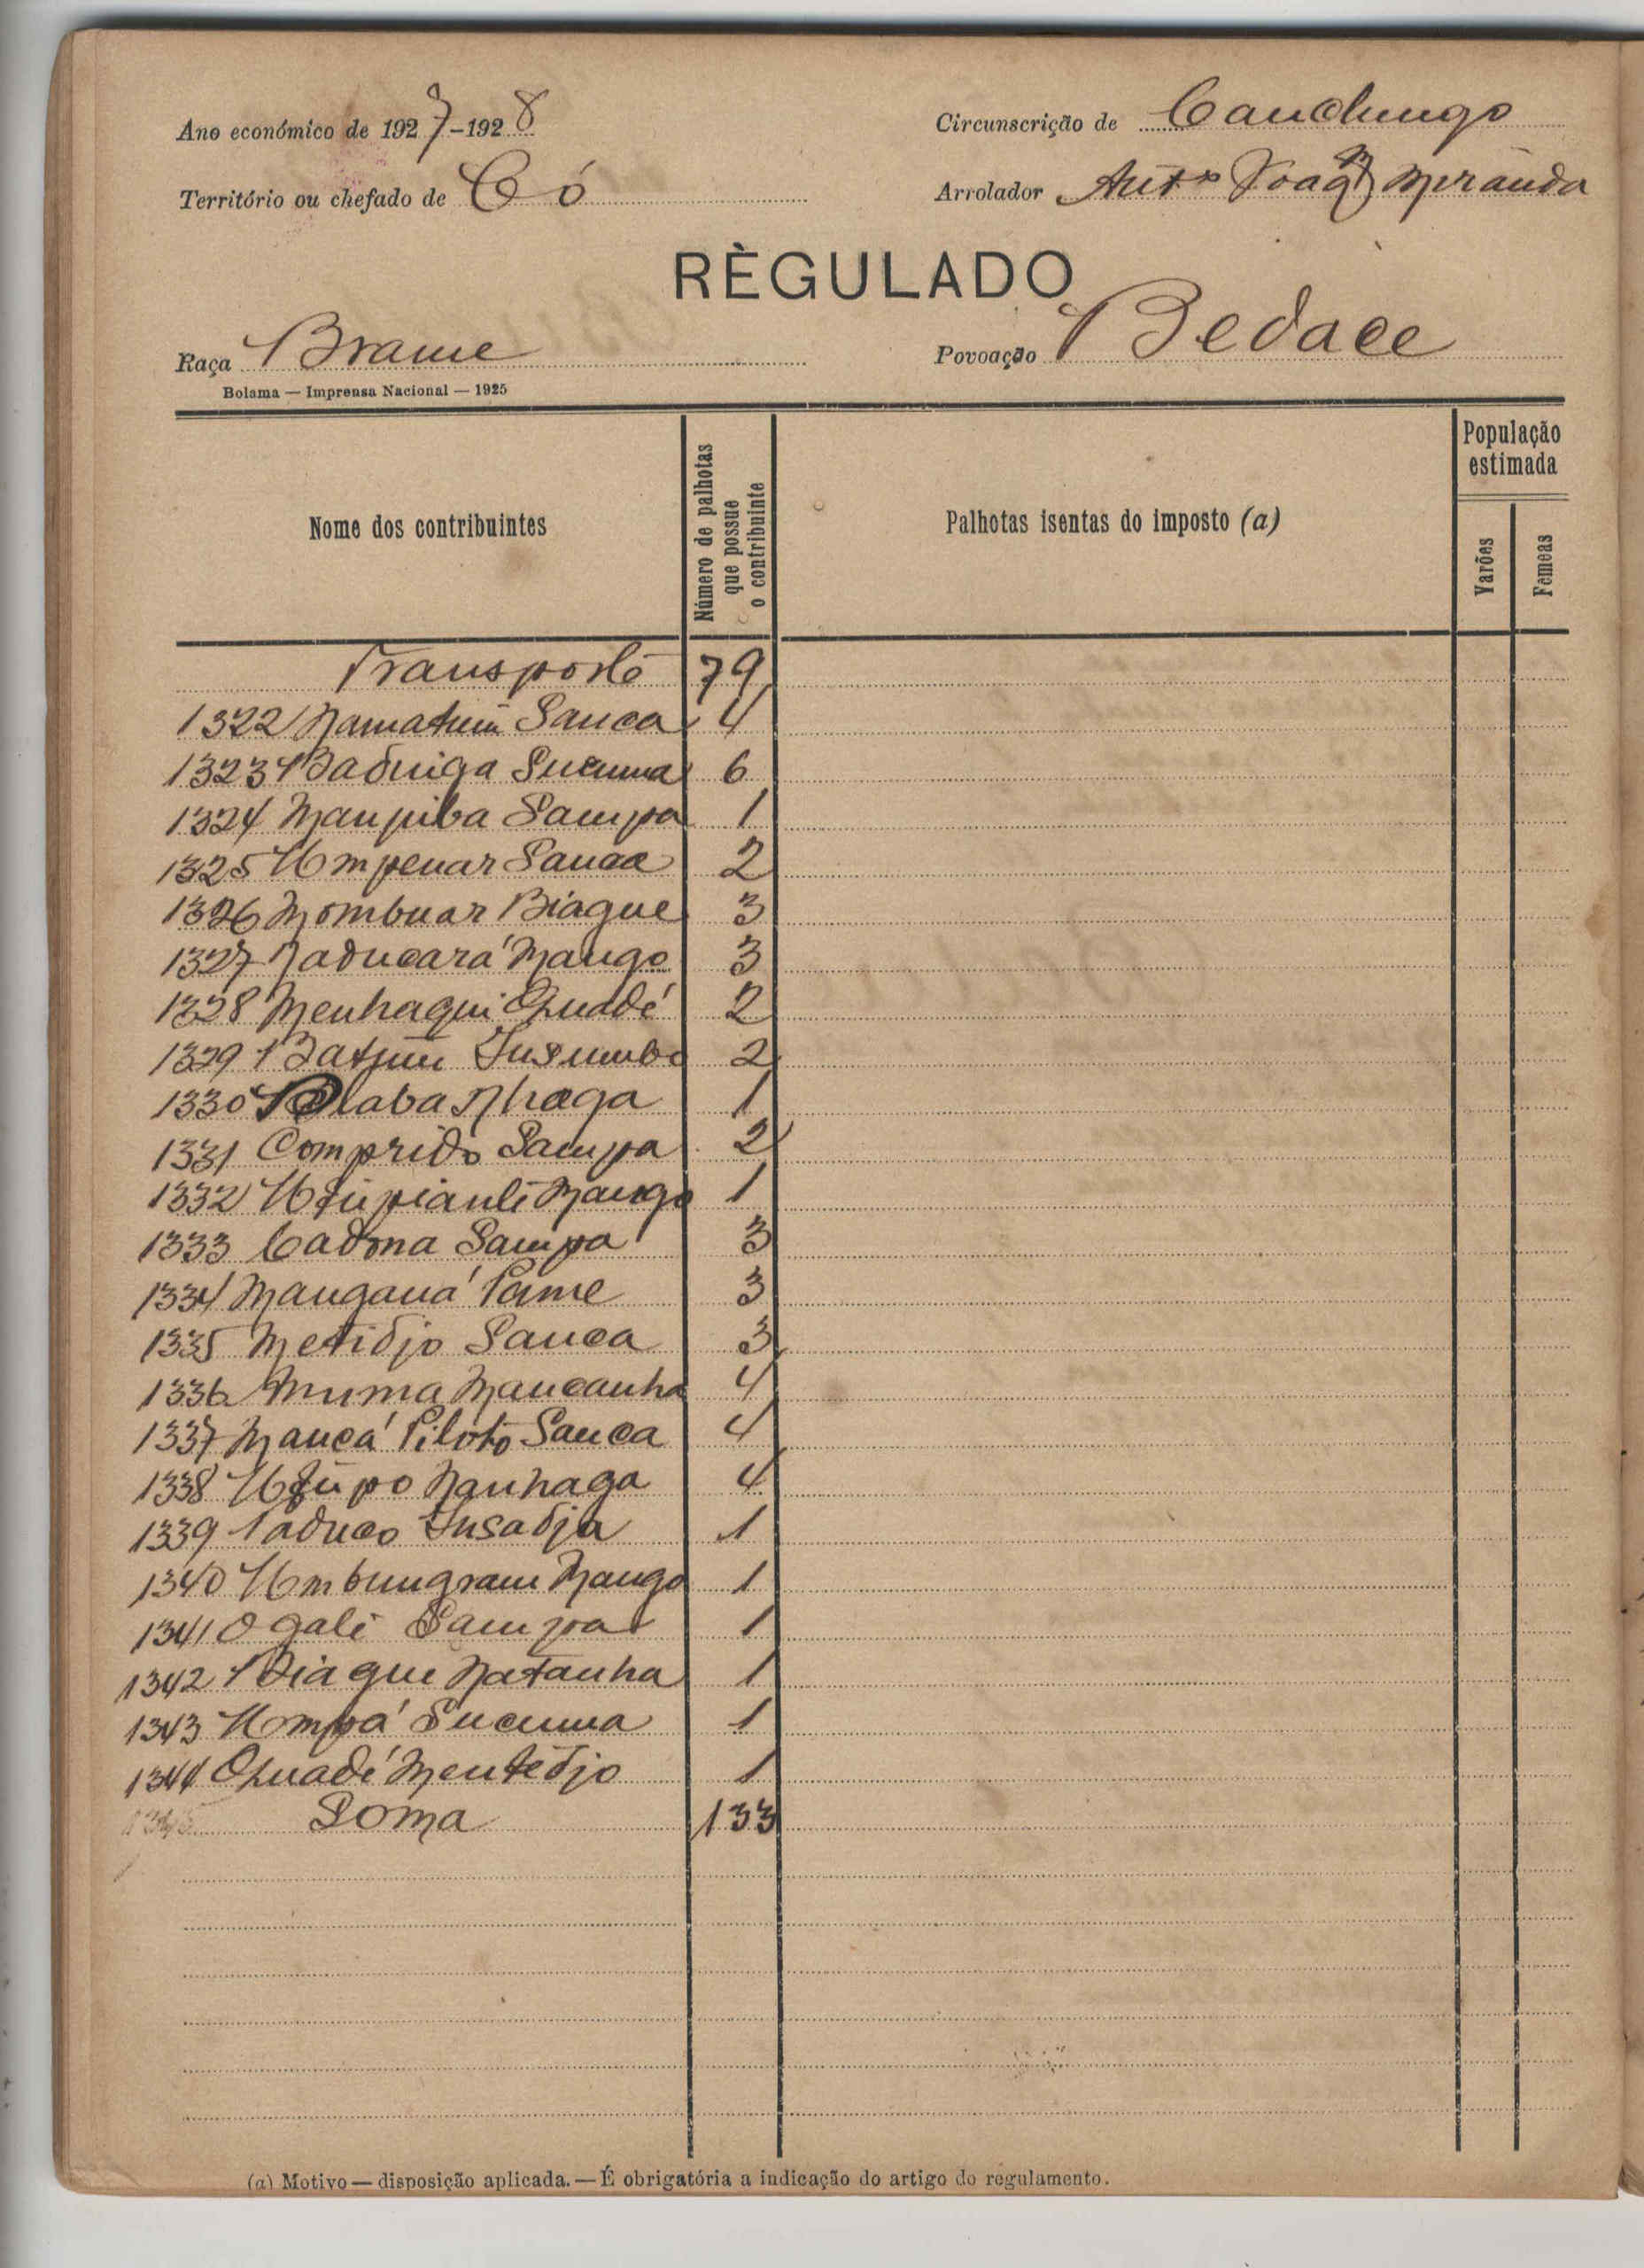 Ano económico de 1927-1928
Circunscrição de Canchungo
Território ou chefado de Có
Arrolador Antº Joaqm Miranda
RÈGULADO
Raça Brame
Povoação Bedace
Bolama — Imprensa Nacional — 1925
Nome dos contribuintes
Número de palhotas que possue o contribuinte
Palhotas isentas do imposto (a)
População estimada
Varões
Femeas
Transporte 79
1322 Namatum Sanca 4
1323 Baduiga Sucuma 6
1324 Manpiba Sampa 1
1325 Umpenar Sanca 2
1326 Mombuar Biague 3
1327 Naducará Mango 3
1328 Menhaqui Quadé 2
1329 Batum Insumbo 2
1330 Blaba Nhaga 1
1331 Comprido Sampa 2
1332 Mango 1
1333 Cadona Sampa 3
1334 Manganá Pame 3
1335 Metidjo Sanca 3
1336 Muma Mancanha 4
1337 Mancá Piloto Sanca 4
1338 Nanhaga 4
1339 Paduco Insadja 1
1340 Umbungram Mango 1
1341 Ogali Sampa 1
1342 Biague Natanha 1
1343 Umpá Sucuma 1
1344 Quadé Mentedjo 1
1345 Soma 133
(a) Motivo — disposição aplicada. — É obrigatória a indicação do artigo do regulamento.